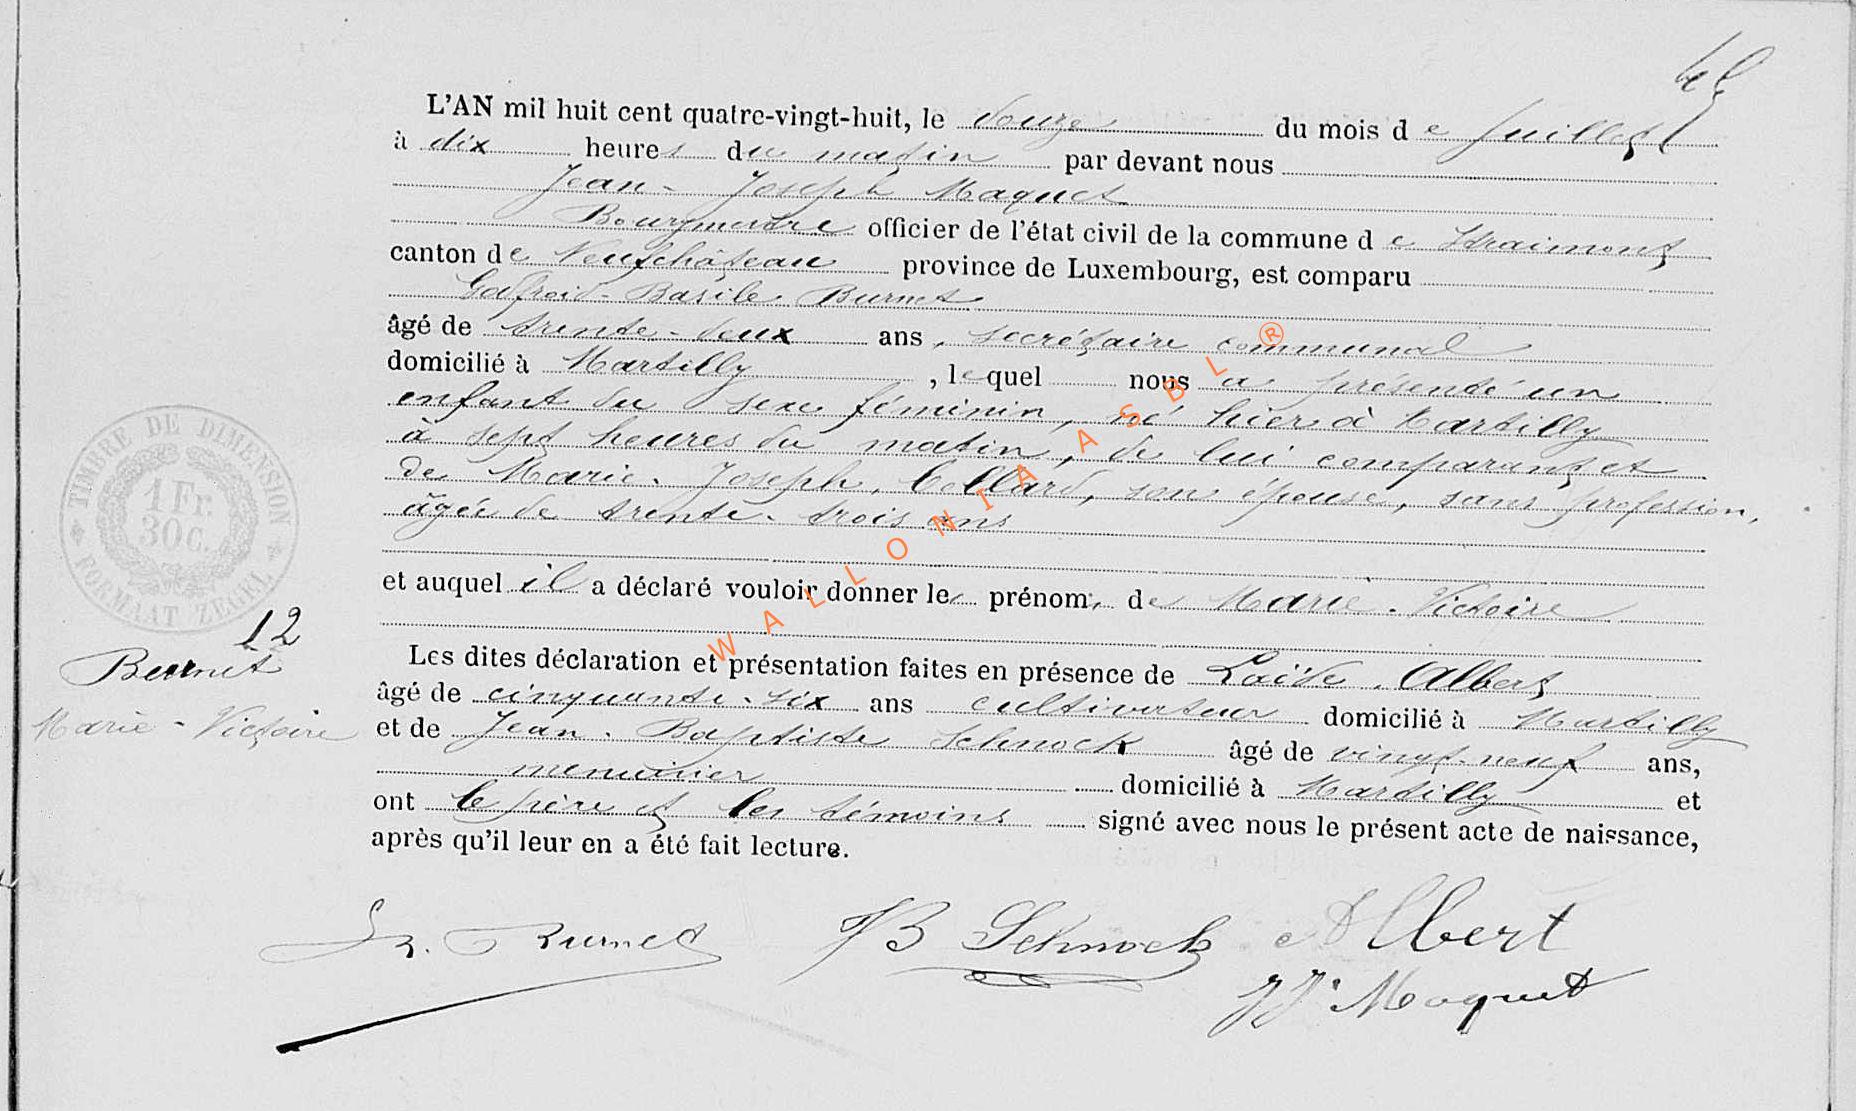 L'AN mil huit cent quatre-vingt-huit, le douze du mois de Juillet
à dix heures du matin par devant nous
Jean-Joseph Maquet
Bourgmestre officier de l'état civil de la commune de Straimont
canton de Neufchâteau province de Luxembourg, est comparu
Godfroid-Basile Burnet
âgé de trente-deux ans, secrétaire communal
domicilié à Martilly, lequel nous a présenté un
enfant du sexe féminin, né hier à Martilly
à sept heures du matin, de lui comparant et
de Marie-Joseph Collard, son épouse, sans profession,
âgée de trente-trois ans
et auquel il a déclaré vouloir donner les prénoms de Marie-Victoire
Les dites déclaration et présentation faites en présence de Albert
âgé de cinquante-six ans cultivateur domicilié à Martilly
et de Jean-Baptiste Schnock âgé de vingt-neuf ans,
menuisier domicilié à Martilly et
ont le père et les témoins signé avec nous le présent acte de naissance,
après qu'il leur en a été fait lecture.
TIMBRE DE DIMENSION
1 Fr.
30 C.
FORMAAT ZEGEL
12
Burnet
Marie-Victoire
Burnet JB Schnock Albert
JJ Maquet
WALLONIA ASBL ®